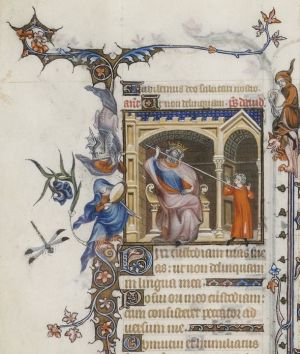 ubilemus deo salutari nostro
Ut non delinquam david
Dixi custodiam vias me
as: ut non delinquam
in lingua mea.
Posui ori meo custodiam:
cum consisteret peccator ad
versum me.
Obmutui et humiliatus